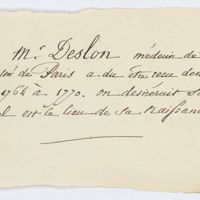 Mr. Deslon médecin de
de Paris a du être reçu do
1764 à 1770. on désireroit s
el est le lieu de sa naissan